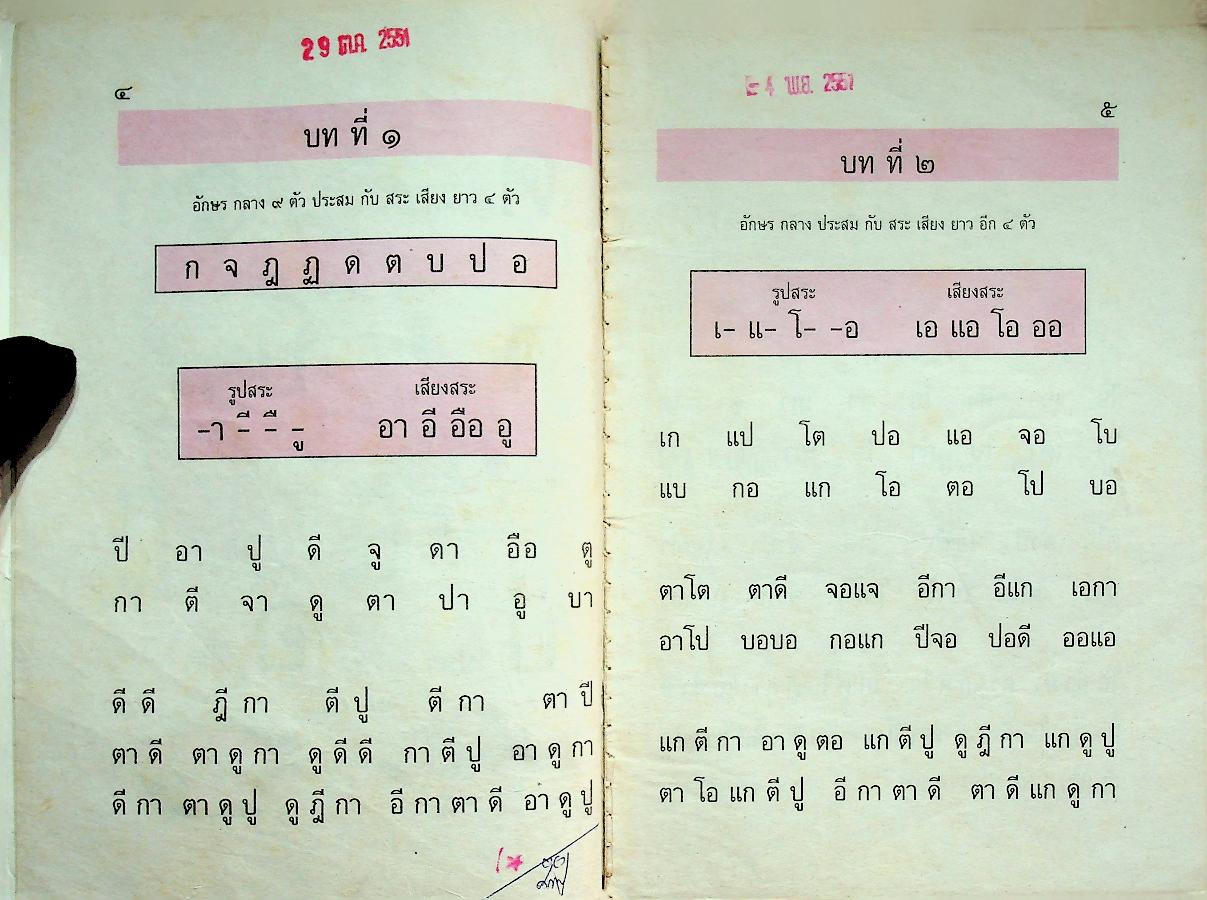 29 ต.ค. 2551
๔
บท ที่ ๑
อักษร กลาง ๙ ตัว ประสม กับ สระ เสียง ยาว ๔ ตัว
ก จ ฎ ฏ ด ต บ ป อ
รูปสระ เสียงสระ
-า -ี -ื -ู อา อี อือ อู
ปี อา ปู ดี จู ดา อือ ตู
กา ตี จา ดู ตา ปา อู บา
ดี ดี ฎี กา ตี ปู ตี กา ตา ปี
ตา ดี ตา ดู กา ดู ดี ดี กา ตี ปู อา ดู กา
ดี กา ตา ดู ปู ดู ฎี กา อี กา ตา ดี อา ดู ปู
๒4 พ.ย. 2551
๕
บท ที่ ๒
อักษร กลาง ประสม กับ สระ เสียง ยาว อีก ๔ ตัว
รูปสระ เสียงสระ
เ- แ- โ- -อ เอ แอ โอ ออ
เก แป โต ปอ แอ จอ โบ
แบ กอ แก โอ ตอ โป บอ
ตาโต ตาดี จอแจ อีกา อีแก เอกา
อาโป บอบอ กอแก ปีจอ ปอดี ออแอ
แก ตี กา อา ดู ตอ แก ตี ปู ดู ฎี กา แก ดู ปู
ตา โอ แก ตี ปู อี กา ตา ดี ตา ดี แก ดู กา